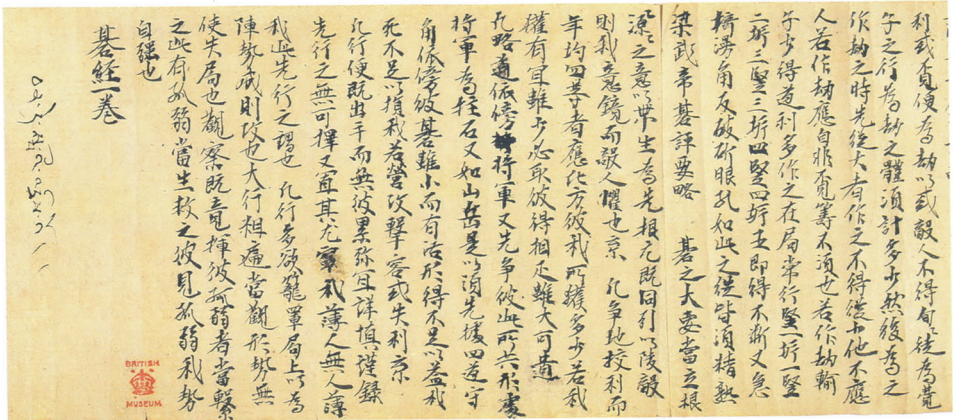 利或覓便為劫以或敵人不得徒為覺
子之行為劫之體須計多少然後為之
作劫之時先從大者作之不得從少他不應
人若作劫應自非覓籌不須也若作劫輸
子少得道利多作之在局常行竪一拆一竪
二拆三竪三拆四竪四拆五即得不斷又急
湯角反破斫眼孔如此之徒皆須精熟
梁武帝碁評要略 碁之大要當立根
源之意帶生為先根元既固引以陵敵
則我意鏡而敵人懼也 凡爭地校利而
年均四等者應他方彼我所獲多少若我
權有宜雖少必取彼得相疋雖大可遺
凡略道依傍將軍又先爭彼此所共形處
將軍為柱石又如山岳是以須先據四道守
角依傍彼碁雖小而有活形得不足以益我
死不足以損我若營攻擊容或失利
凡行便既出手而無彼累弥宜詳慎謹錄
先行之無可擇又宜其尤寧我薄人無人薄
我此先行之謂也 凡行多欲籠罩局上以為
陣勢成則攻也大行粗遍當觀形勢無
使失局也觀察既竟揮彼孤弱者當繫
之此有孤弱當生救之彼見孤弱我勢
自强也
碁經一卷
BRITISH
MUSEUM